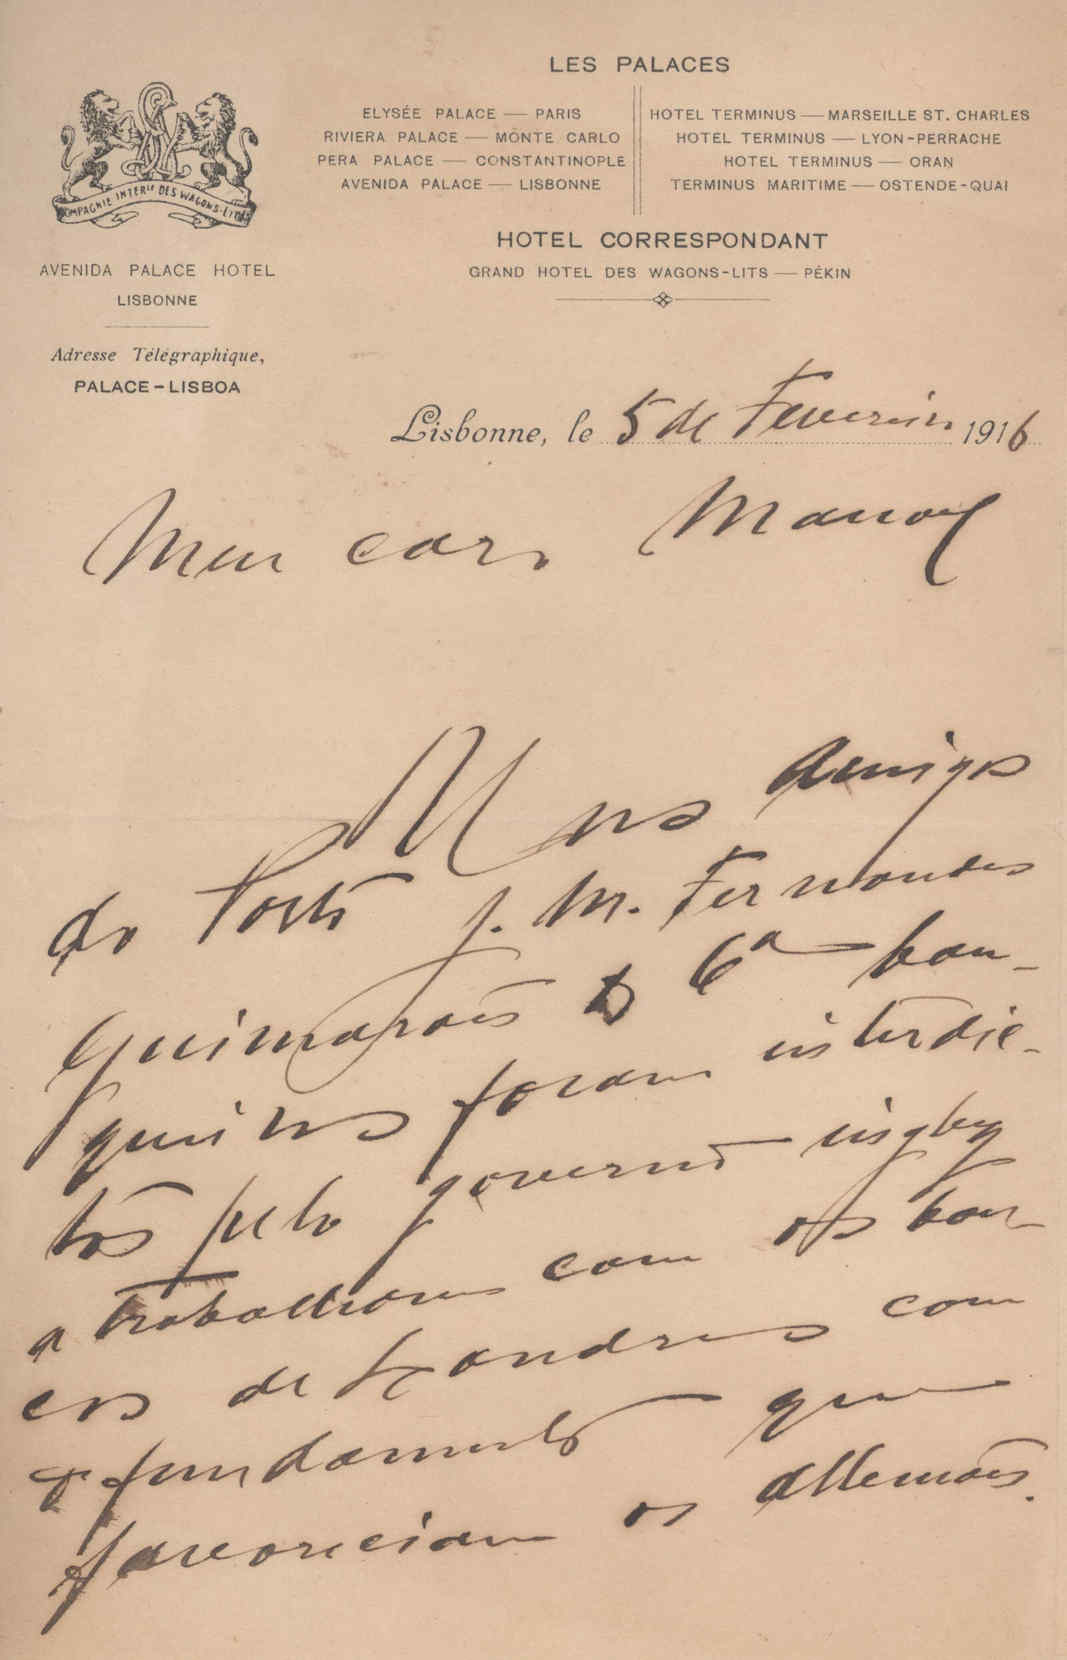 LES PALACES
ELYSÉE PALACE — PARIS
RIVIERA PALACE — MONTE CARLO
PERA PALACE — CONSTANTINOPLE
AVENIDA PALACE — LISBONNE
HOTEL TERMINUS — MARSEILLE ST. CHARLES
HOTEL TERMINUS — LYON-PERRACHE
HOTEL TERMINUS — ORAN
TERMINUS MARITIME — OSTENDE-QUAI
HOTEL CORRESPONDANT
GRAND HOTEL DES WAGONS-LITS — PÉKIN
COMPAGNIE INTERLE DES WAGONS-LITS
AVENIDA PALACE HOTEL
LISBONNE
Adresse Télégraphique,
PALACE-LISBOA
Lisbonne, le 5 de Fevereiro 1916
Meu caro Manoel
Uns amigos
do Porto J. M. Fernandes
Guimarães & Cª ban-
queiros foram interdic-
tos pelo governo inglez
a trabalharem com os ban-
cos de Londres com
o fundamento que
favoreciam os allemães.